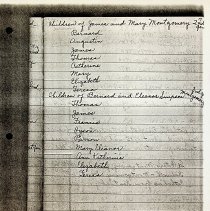 Children of James and Mary Montgomery 2nd
Bernard
Augustin
James
Thomas
Catherine
Mary
Elizabeth
Teresa
Children of Bernard and Eleanor Simpson
Thomas
James
Francis
Mary Eleanor
Ann Catherine
Elizabeth